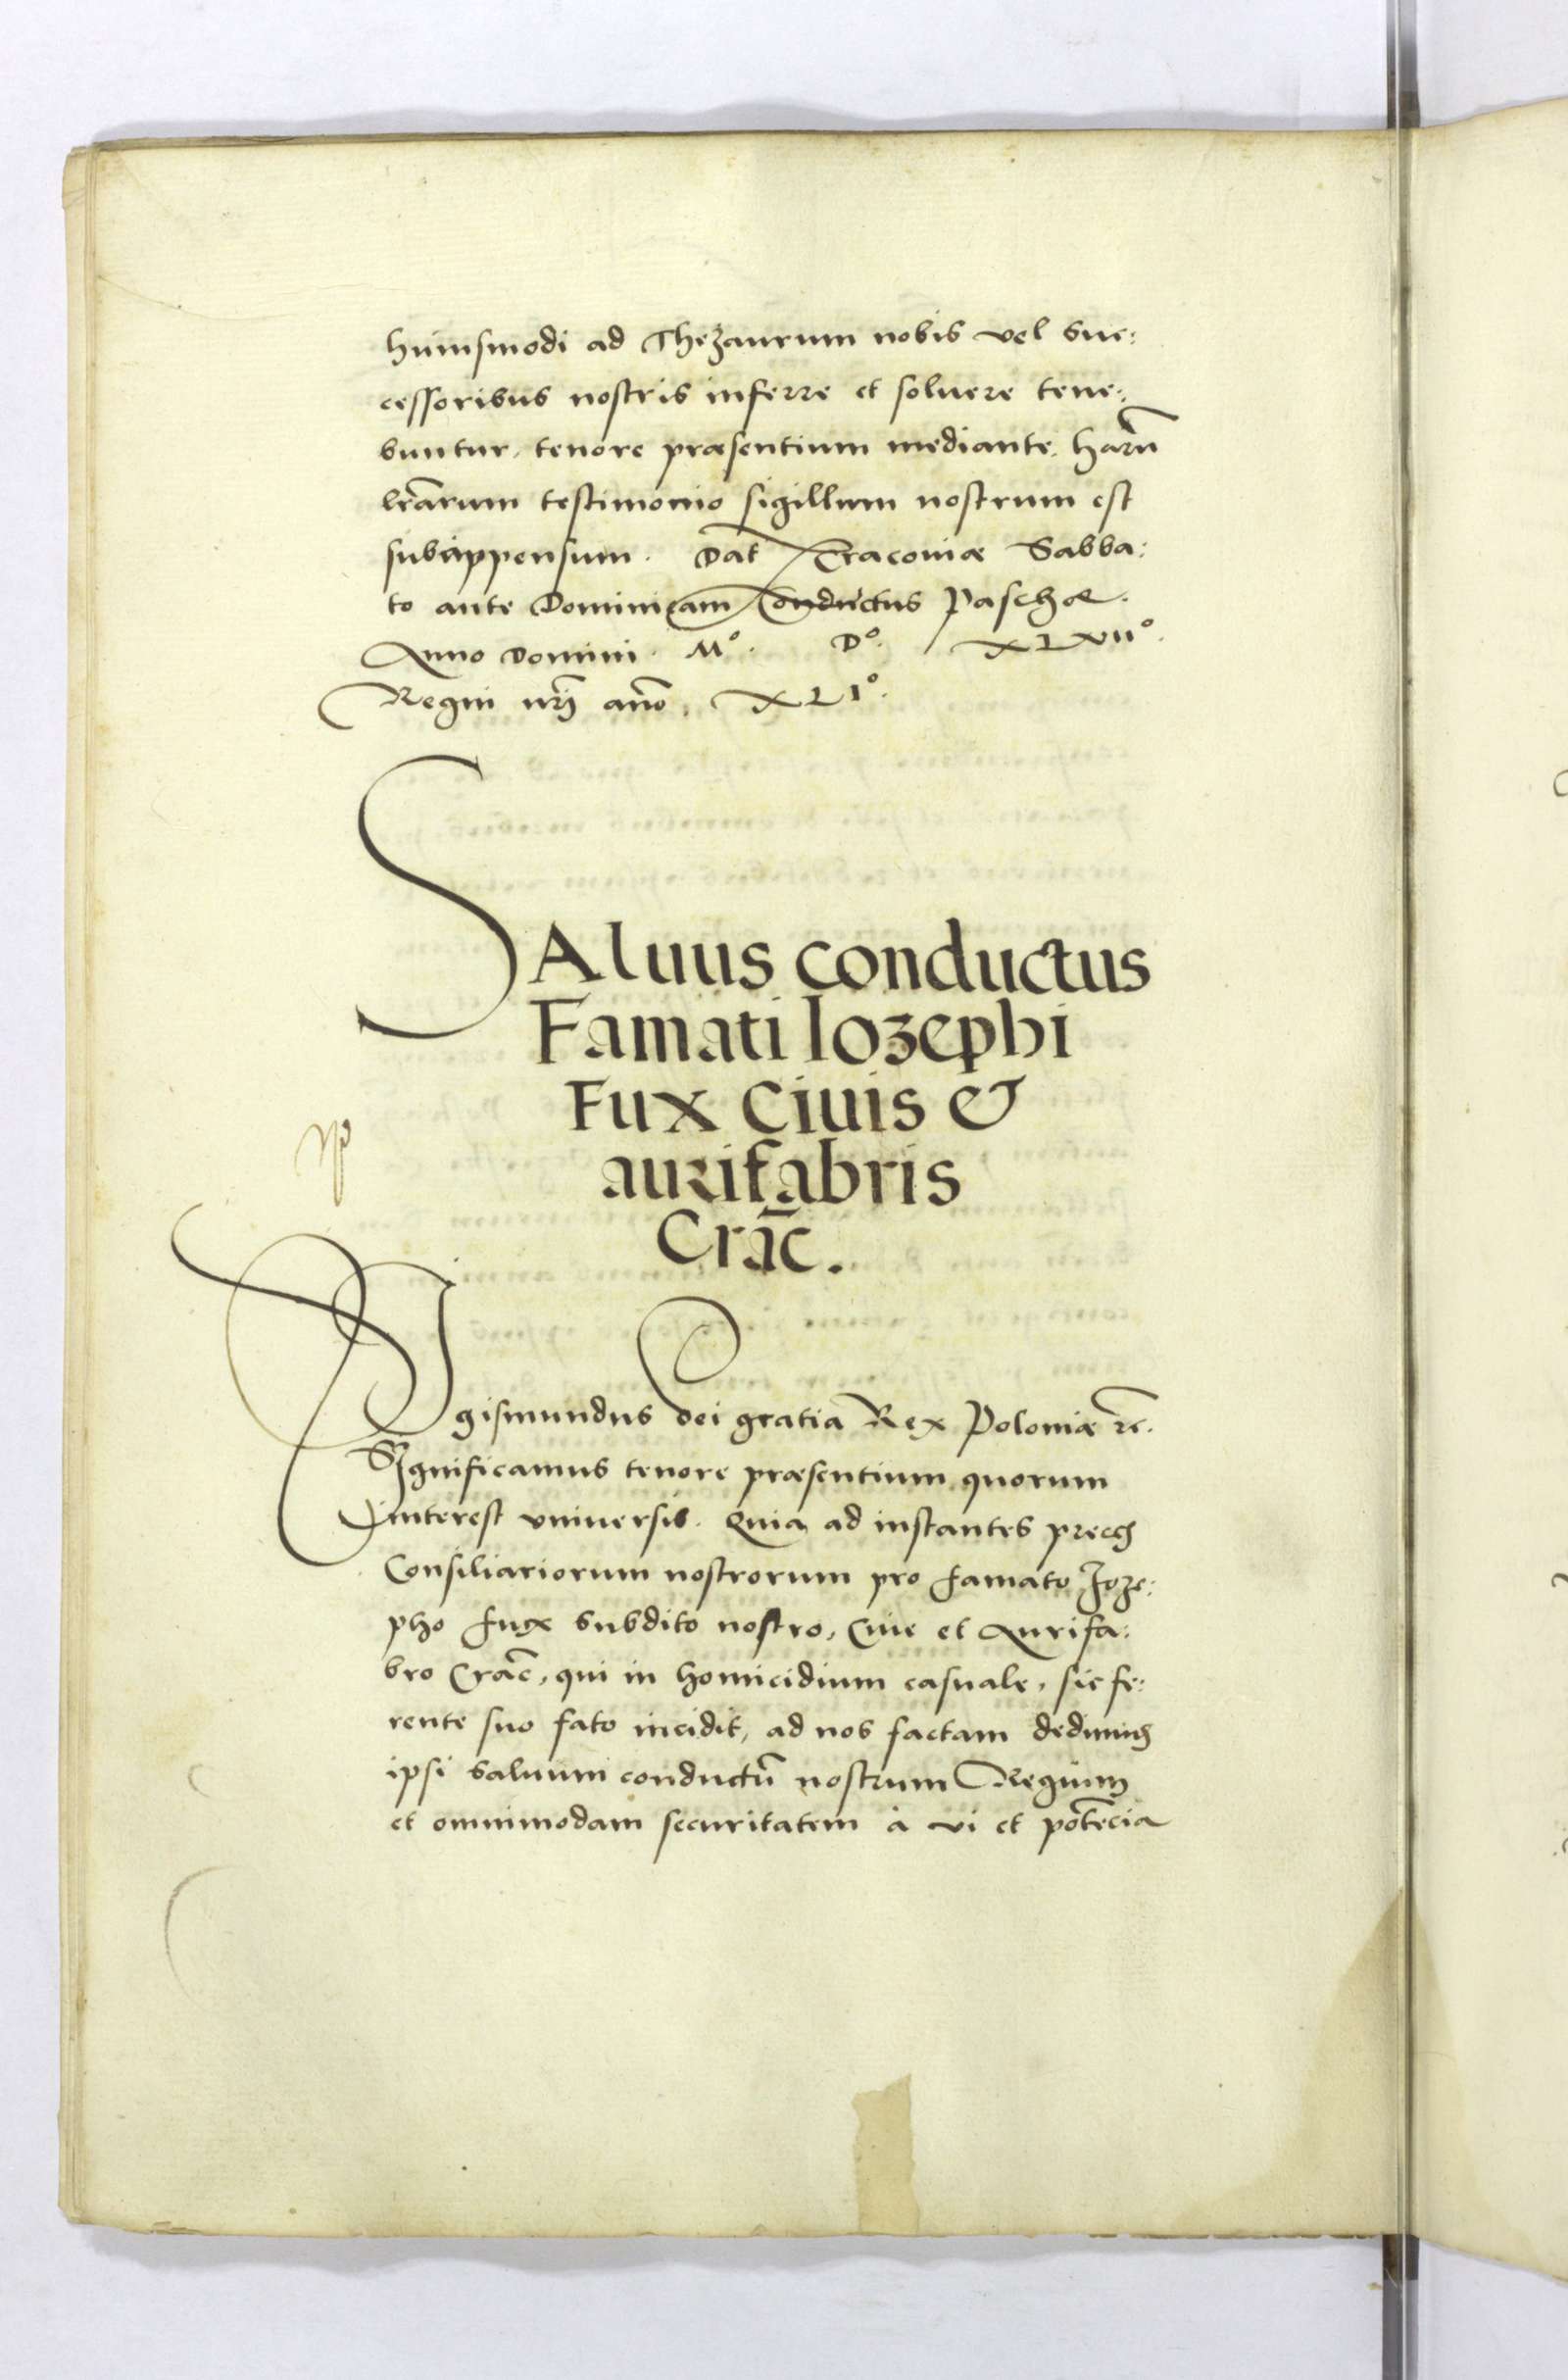 huiusmodi ad Thezaurum nobis vel suc:
cessoribus nostris inferre et soluere tene:
buntur, tenore præsentium mediante. harū
lrārum testimonio sigillum nostrum est
subappensum. Dat Cracoviæ Sabba:
to ante Dominicam Conductus Paschæ.
Anno Domini M° D° XLVII°.
Regni nrī año. XLI°.
SAluus conductus
Famati Iozephi
Fux Ciuis &
aurifabris
Crāc.
SIgismundus dei gratia Rex Poloniæ rc.
Significamus tenore præsentium quorum
interest vniuersis. Quia ad instantes preces
Consiliariorum nostrorum pro famato Joze:
pho fux subdito nostro, Ciue et Aurifa:
bro Crāc, qui in homicidium casuale, sic fe:
rente suo fato incidit, ad nos factam dedimus
ipsi saluum conductū nostrum Regium
et omnimodam securitatem à vi et potēcia